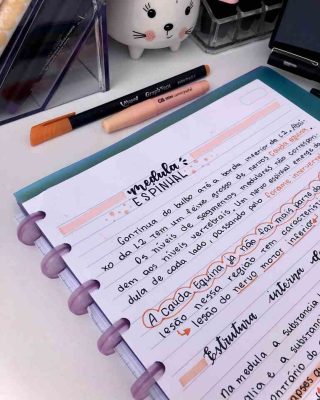 medula
ESPINHAL
Continua do bulbo até a borda inferior de L2. Abai-
xo da L2 tem um feixe grosso de nervos (cauda equina).
Os níveis de segmentos medulares não correspon-
dem aos níveis vertebrais. Um novo nervo espinal emerge da
dula de cada lado, passando pelo forame
A cauda Equina já não faz mais parte da
lesão nessa região tem característica
lesão do nervo motor inferior
Estrutura interna
na medula a substância
e a substan
contrário do